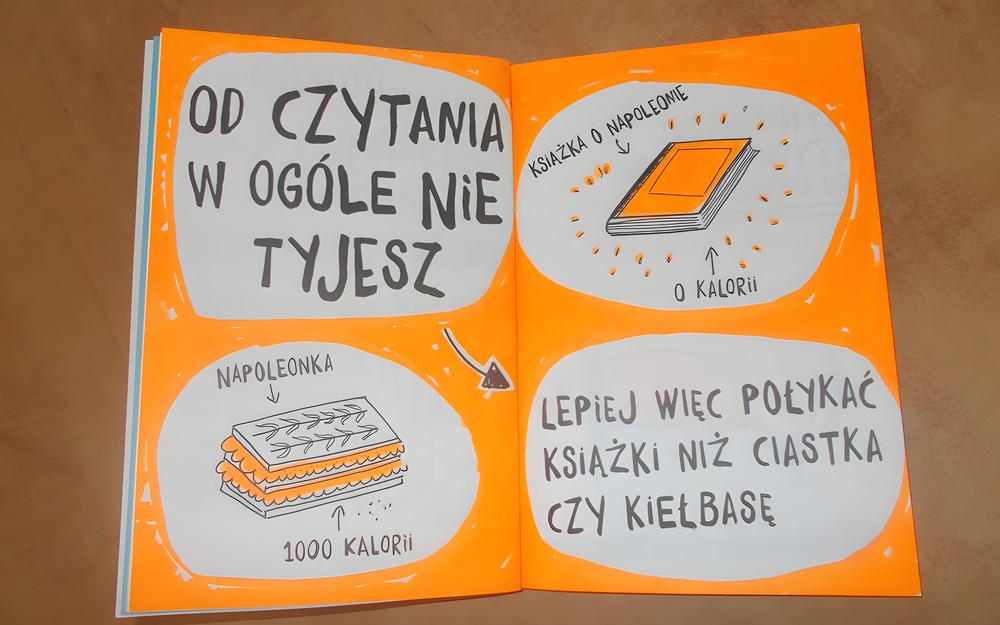 OD CZYTANIA
W OGÓLE NiE
TYJESZ
NAPOLEONKA
1000 KALORii
KSIĄŻKA O NAPOLEONIE
0 KALORii
LEPiEJ WIĘC POŁYKAĆ
KSIĄŻKi NIŻ CIASTKA
CZY KiEŁBASĘ